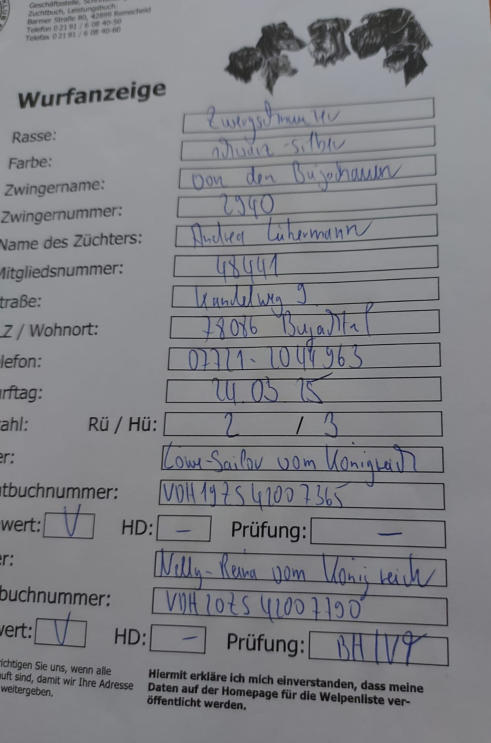 Geschäftsstelle,
Zuchtbuch, Leistungsbuch:
Barmer Straße 80, 42899 Remscheid
Telefon 0 21 91 / 6 08 40-50
Telefax 0 21 91 / 6 08 40-60
Wurfanzeige
Rasse: Zwergschnauzer
Farbe: schwarz-silber
Zwingername: von den
Zwingernummer: 2940
Name des Züchters: Andrea Lührmann
Mitgliedsnummer: 48441
traße: 9
LZ / Wohnort: 78086
elefon: 07721-2044963
urftag: 24.03.25
zahl: Rü / Hü: 2 / 3
er: Löwe-Sailor vom Königreich
htbuchnummer: VDH19ZS42007365
wert: V HD: – Prüfung: –
er: Nelly-Reina vom Königreich
buchnummer: VDH20ZS42007190
wert: V HD: – Prüfung: BH/VT
richtigen Sie uns, wenn alle
uft sind, damit wir Ihre Adresse
weitergeben.
Hiermit erkläre ich mich einverstanden, dass meine
Daten auf der Homepage für die Welpenliste ver-
öffentlicht werden.